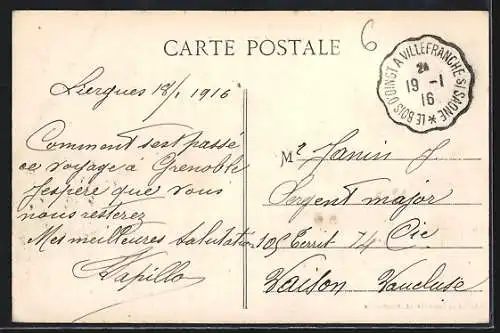 CARTE POSTALE
6
LE BOIS D'OINGT A VILLEFRANCHE S/ SAONE
2
19 -1
16
Liergues 18/1 1916
Comment s'est passé
ce voyage à Grenoble
J'espère que vous
nous resterez
Mes meilleures salutation
Papillo
Mr Janin J.
Sergent major
105 Territ 74 Cie
Vaison Vaucluse